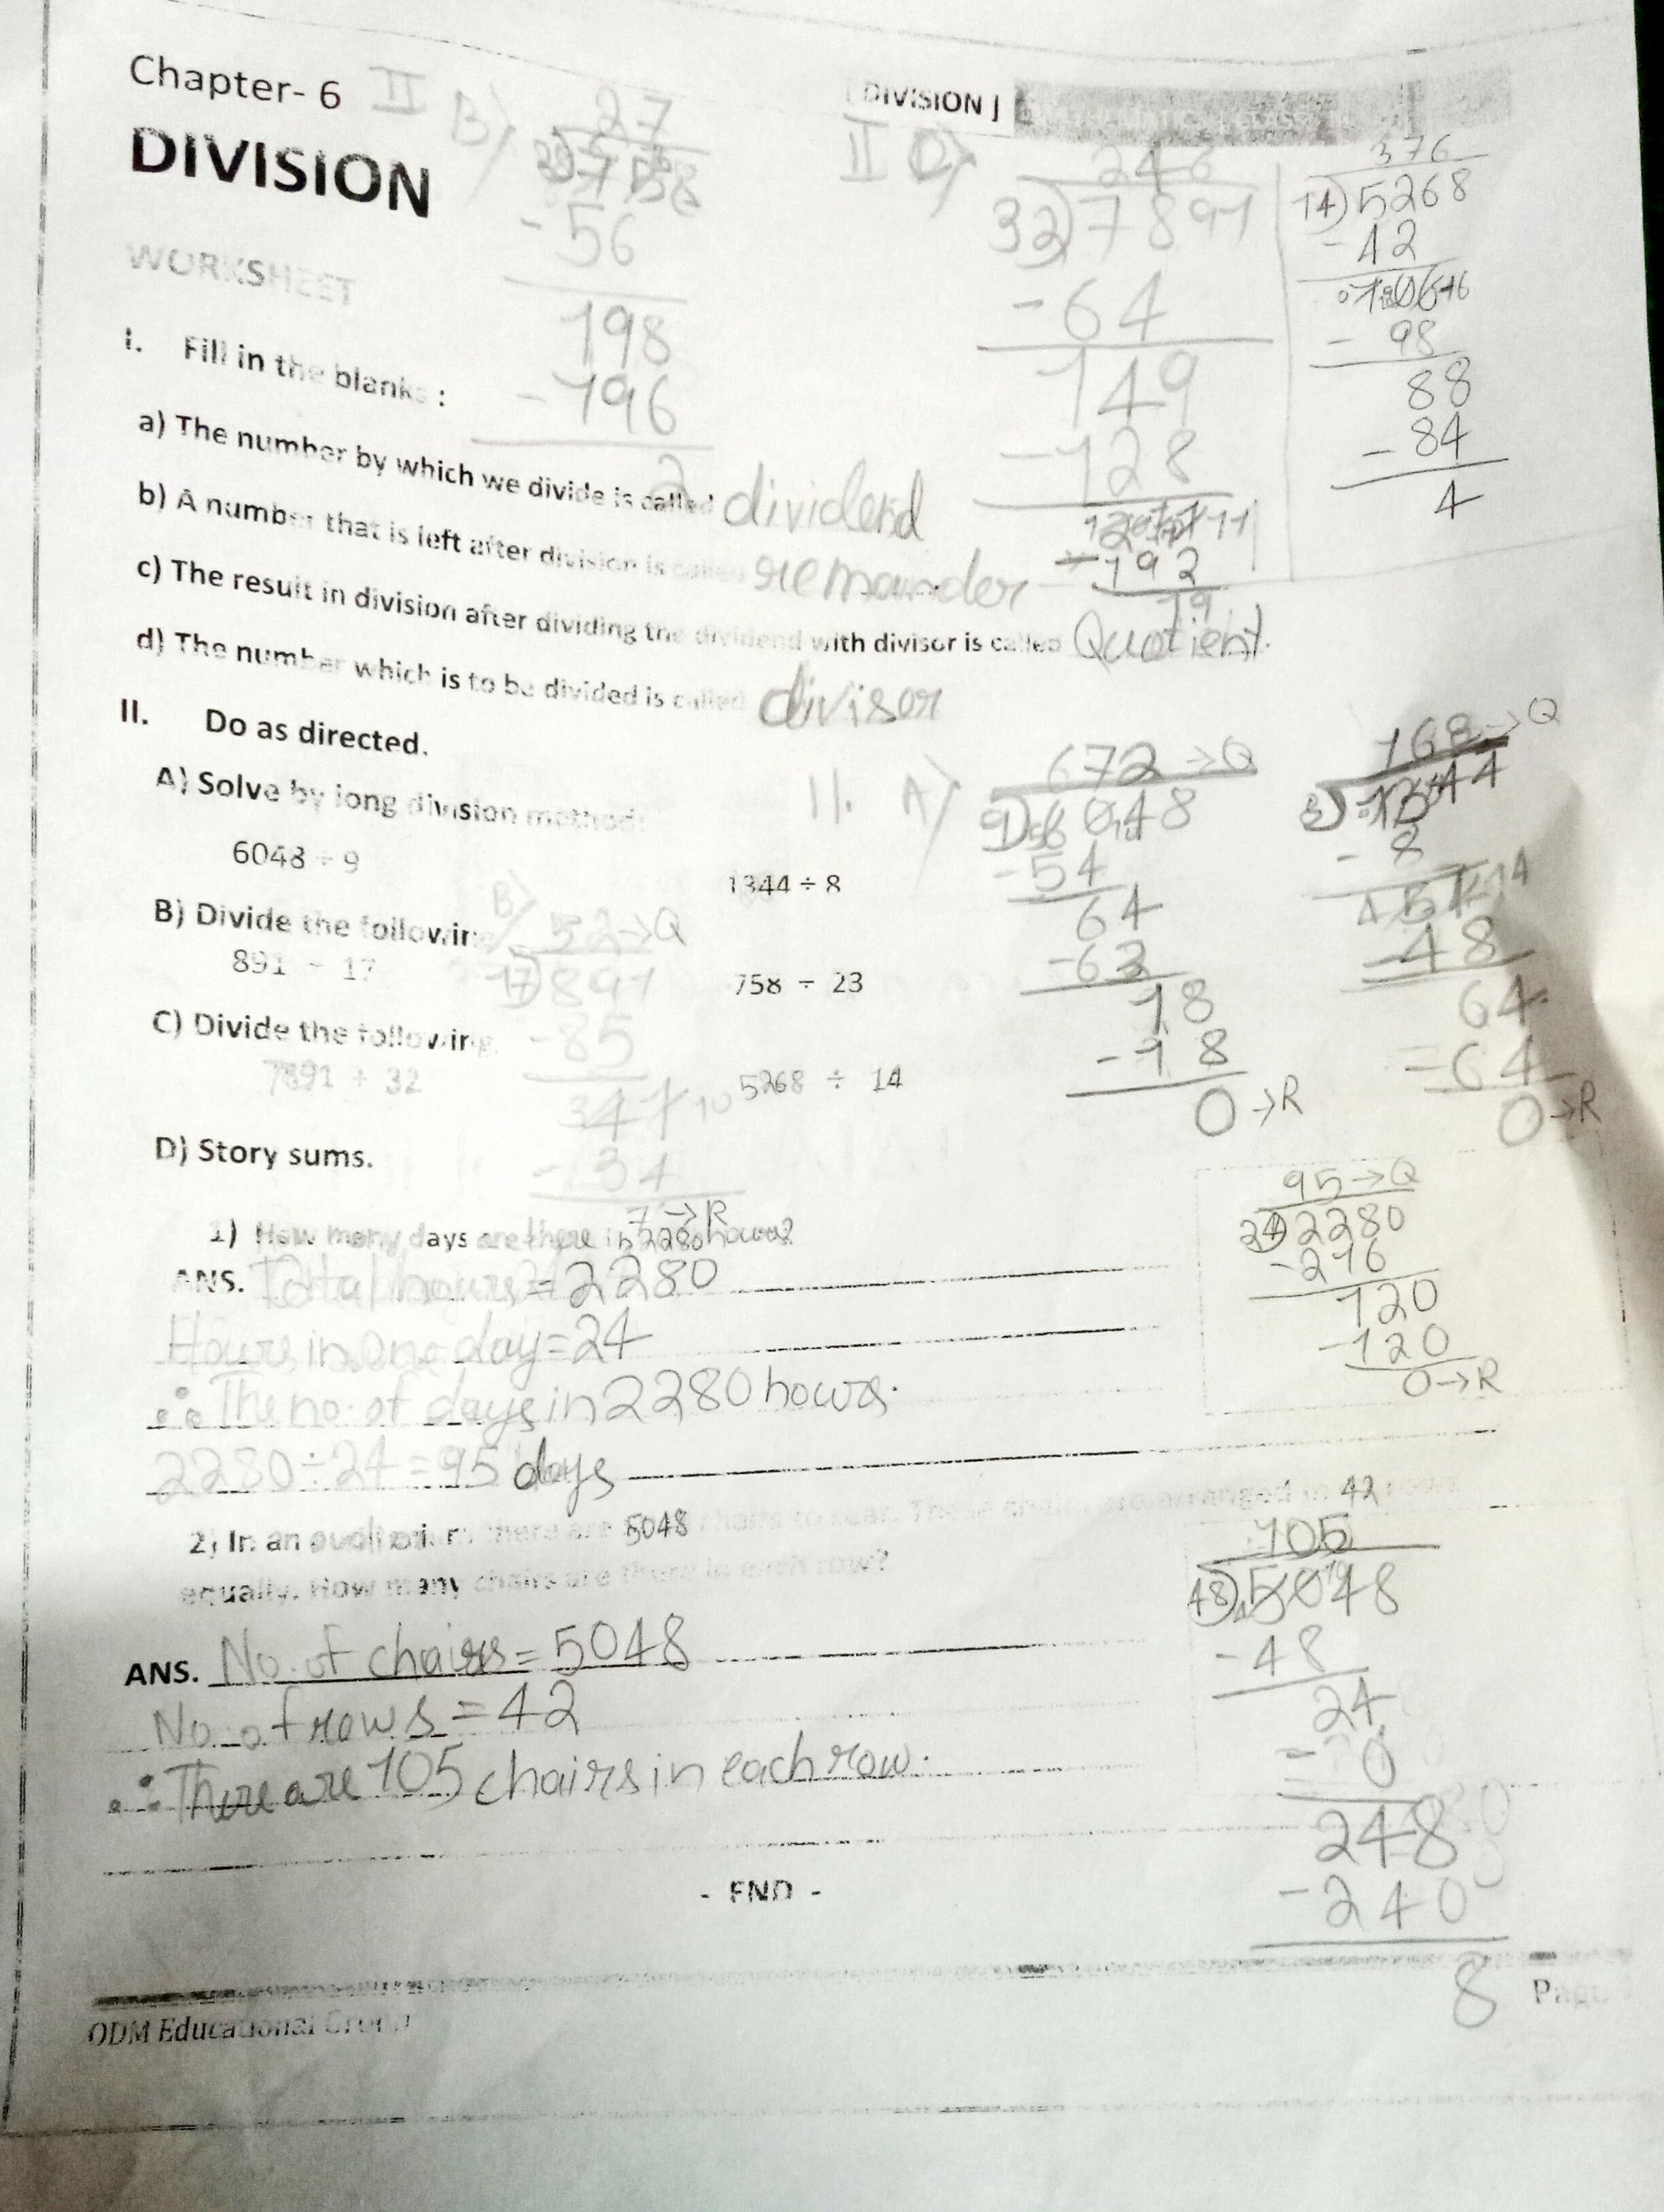 Chapter- 6
DIVISION
[ DIVISION ]
WORKSHEET
II B)
27
758
- 56
198
- 196
2
II C)
246
32)7891
- 64
149
- 128
- 192
19
376
14)5268
- 42
- 98
88
- 84
4
I. Fill in the blanks :
a) The number by which we divide is called dividend
b) A number that is left after division is called remainder
c) The result in division after dividing the dividend with divisor is called Quotient.
d) The number which is to be divided is called divisor
II. Do as directed.
A) Solve by long division method:
6048 ÷ 9 1344 ÷ 8
B) Divide the following
891 ÷ 17 758 ÷ 23
C) Divide the following.
7891 ÷ 32 5268 ÷ 14
II. A)
672 → Q
9)6048
- 54
64
- 63
18
- 18
0 → R
168 → Q
8)1344
- 8
- 48
64
- 64
0 → R
B)
52 → Q
17)891
- 85
- 34
7 → R
D) Story sums.
1) How many days are there in 2280 hours?
ANS. Total hours = 2280
Hours in one day = 24
∴ The no. of days in 2280 hours.
2280 ÷ 24 = 95 days
95 → Q
24)2280
- 216
120
- 120
0 → R
2) In an auditorium there are 5048 chairs to seat. These chairs are arranged in 42 rows
equally. How many chairs are there in each row?
ANS. No. of chairs = 5048
No. of rows = 42
∴ There are 105 chairs in each row.
105
48)5048
- 48
24
- 0
248
- 240
8
- END -
ODM Educational Group
Page